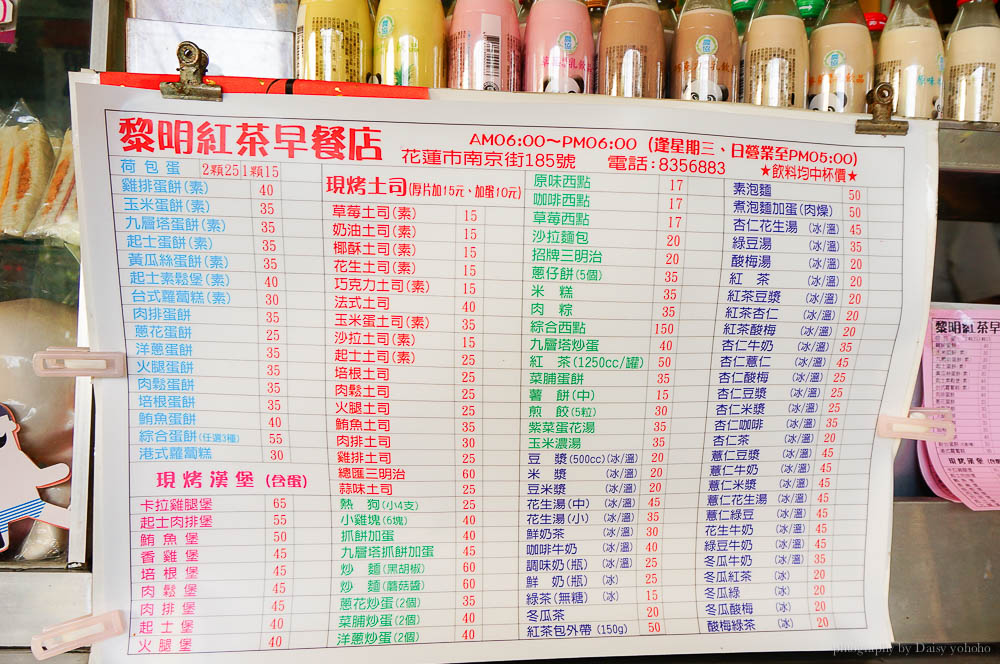 黎明紅茶早餐店
AM06:00～PM06:00 (逢星期三、日營業至PM05:00)
花蓮市南京街185號 電話:8356883 ★飲料均中杯價★
荷包蛋 2顆25 1顆15
雞排蛋餅(素) 40
玉米蛋餅(素) 35
九層塔蛋餅(素) 35
起士蛋餅(素) 35
黃瓜絲蛋餅(素) 35
起士素鬆堡(素) 40
台式蘿蔔糕(素) 30
肉排蛋餅 35
蔥花蛋餅 25
洋蔥蛋餅 35
火腿蛋餅 35
肉鬆蛋餅 35
培根蛋餅 35
鮪魚蛋餅 40
綜合蛋餅(任選3種) 55
港式蘿蔔糕 30
現烤漢堡 (含蛋)
卡拉雞腿堡 65
起士肉排堡 55
鮪魚堡 50
香雞堡 45
培根堡 45
肉鬆堡 45
肉排堡 45
起士堡 40
火腿堡 40
現烤土司(厚片加15元、加蛋10元)
草莓土司(素) 15
奶油土司(素) 15
椰酥土司(素) 15
花生土司(素) 15
巧克力土司(素) 15
法式土司 40
玉米蛋土司(素) 35
沙拉土司(素) 25
起士土司(素) 25
培根土司 25
肉鬆土司 25
火腿土司 25
鮪魚土司 35
肉排土司 30
雞排土司 25
總匯三明治 60
蒜味土司 25
熱狗(小4支) 25
小雞塊(6塊) 40
抓餅加蛋 40
九層塔抓餅加蛋 45
炒麵(黑胡椒) 60
炒麵(蘑菇醬) 60
蔥花炒蛋(2個) 35
菜脯炒蛋(2個) 40
洋蔥炒蛋(2個) 40
原味西點 17
咖啡西點 17
草莓西點 17
沙拉麵包 20
招牌三明治 20
蔥仔餅(5個) 35
米糕 35
肉粽 35
綜合西點 150
九層塔炒蛋 40
紅茶(1250cc/罐) 50
菜脯蛋餅 35
薯餅(中) 15
煎餃(5粒) 30
紫菜蛋花湯 35
玉米濃湯 35
豆漿(500cc)(冰/溫) 20
米漿 (冰/溫) 20
豆米漿 (冰/溫) 20
花生湯(中) (冰/溫) 45
花生湯(小) (冰/溫) 35
鮮奶茶 (冰/溫) 30
咖啡牛奶 (冰/溫) 40
調味奶(瓶) (冰/溫) 25
鮮奶(瓶) (冰) 25
綠茶(無糖) (冰) 15
冬瓜茶 20
紅茶包外帶(150g) 50
素泡麵 50
煮泡麵加蛋(肉燥) 50
杏仁花生湯 (冰/溫) 45
綠豆湯 (冰/溫) 35
酸梅湯 (冰/溫) 20
紅茶 (冰/溫) 20
紅茶豆漿 (冰/溫) 20
紅茶杏仁 (冰/溫) 20
紅茶酸梅 (冰/溫) 20
杏仁牛奶 (冰/溫) 35
杏仁薏仁 (冰/溫) 45
杏仁酸梅 (冰/溫) 25
杏仁豆漿 (冰/溫) 25
杏仁米漿 (冰/溫) 25
杏仁咖啡 (冰/溫) 35
杏仁茶 (冰/溫) 20
薏仁豆漿 (冰/溫) 45
薏仁牛奶 (冰/溫) 45
薏仁米漿 (冰/溫) 45
薏仁花生湯 (冰/溫) 45
薏仁綠豆 (冰/溫) 45
花生牛奶 (冰/溫) 45
綠豆牛奶 (冰/溫) 45
冬瓜牛奶 (冰/溫) 35
冬瓜紅茶 (冰) 20
冬瓜綠 (冰) 20
冬瓜酸梅 (冰) 20
酸梅綠茶 (冰) 20
黎明紅茶早
photography by Daisy yohoho